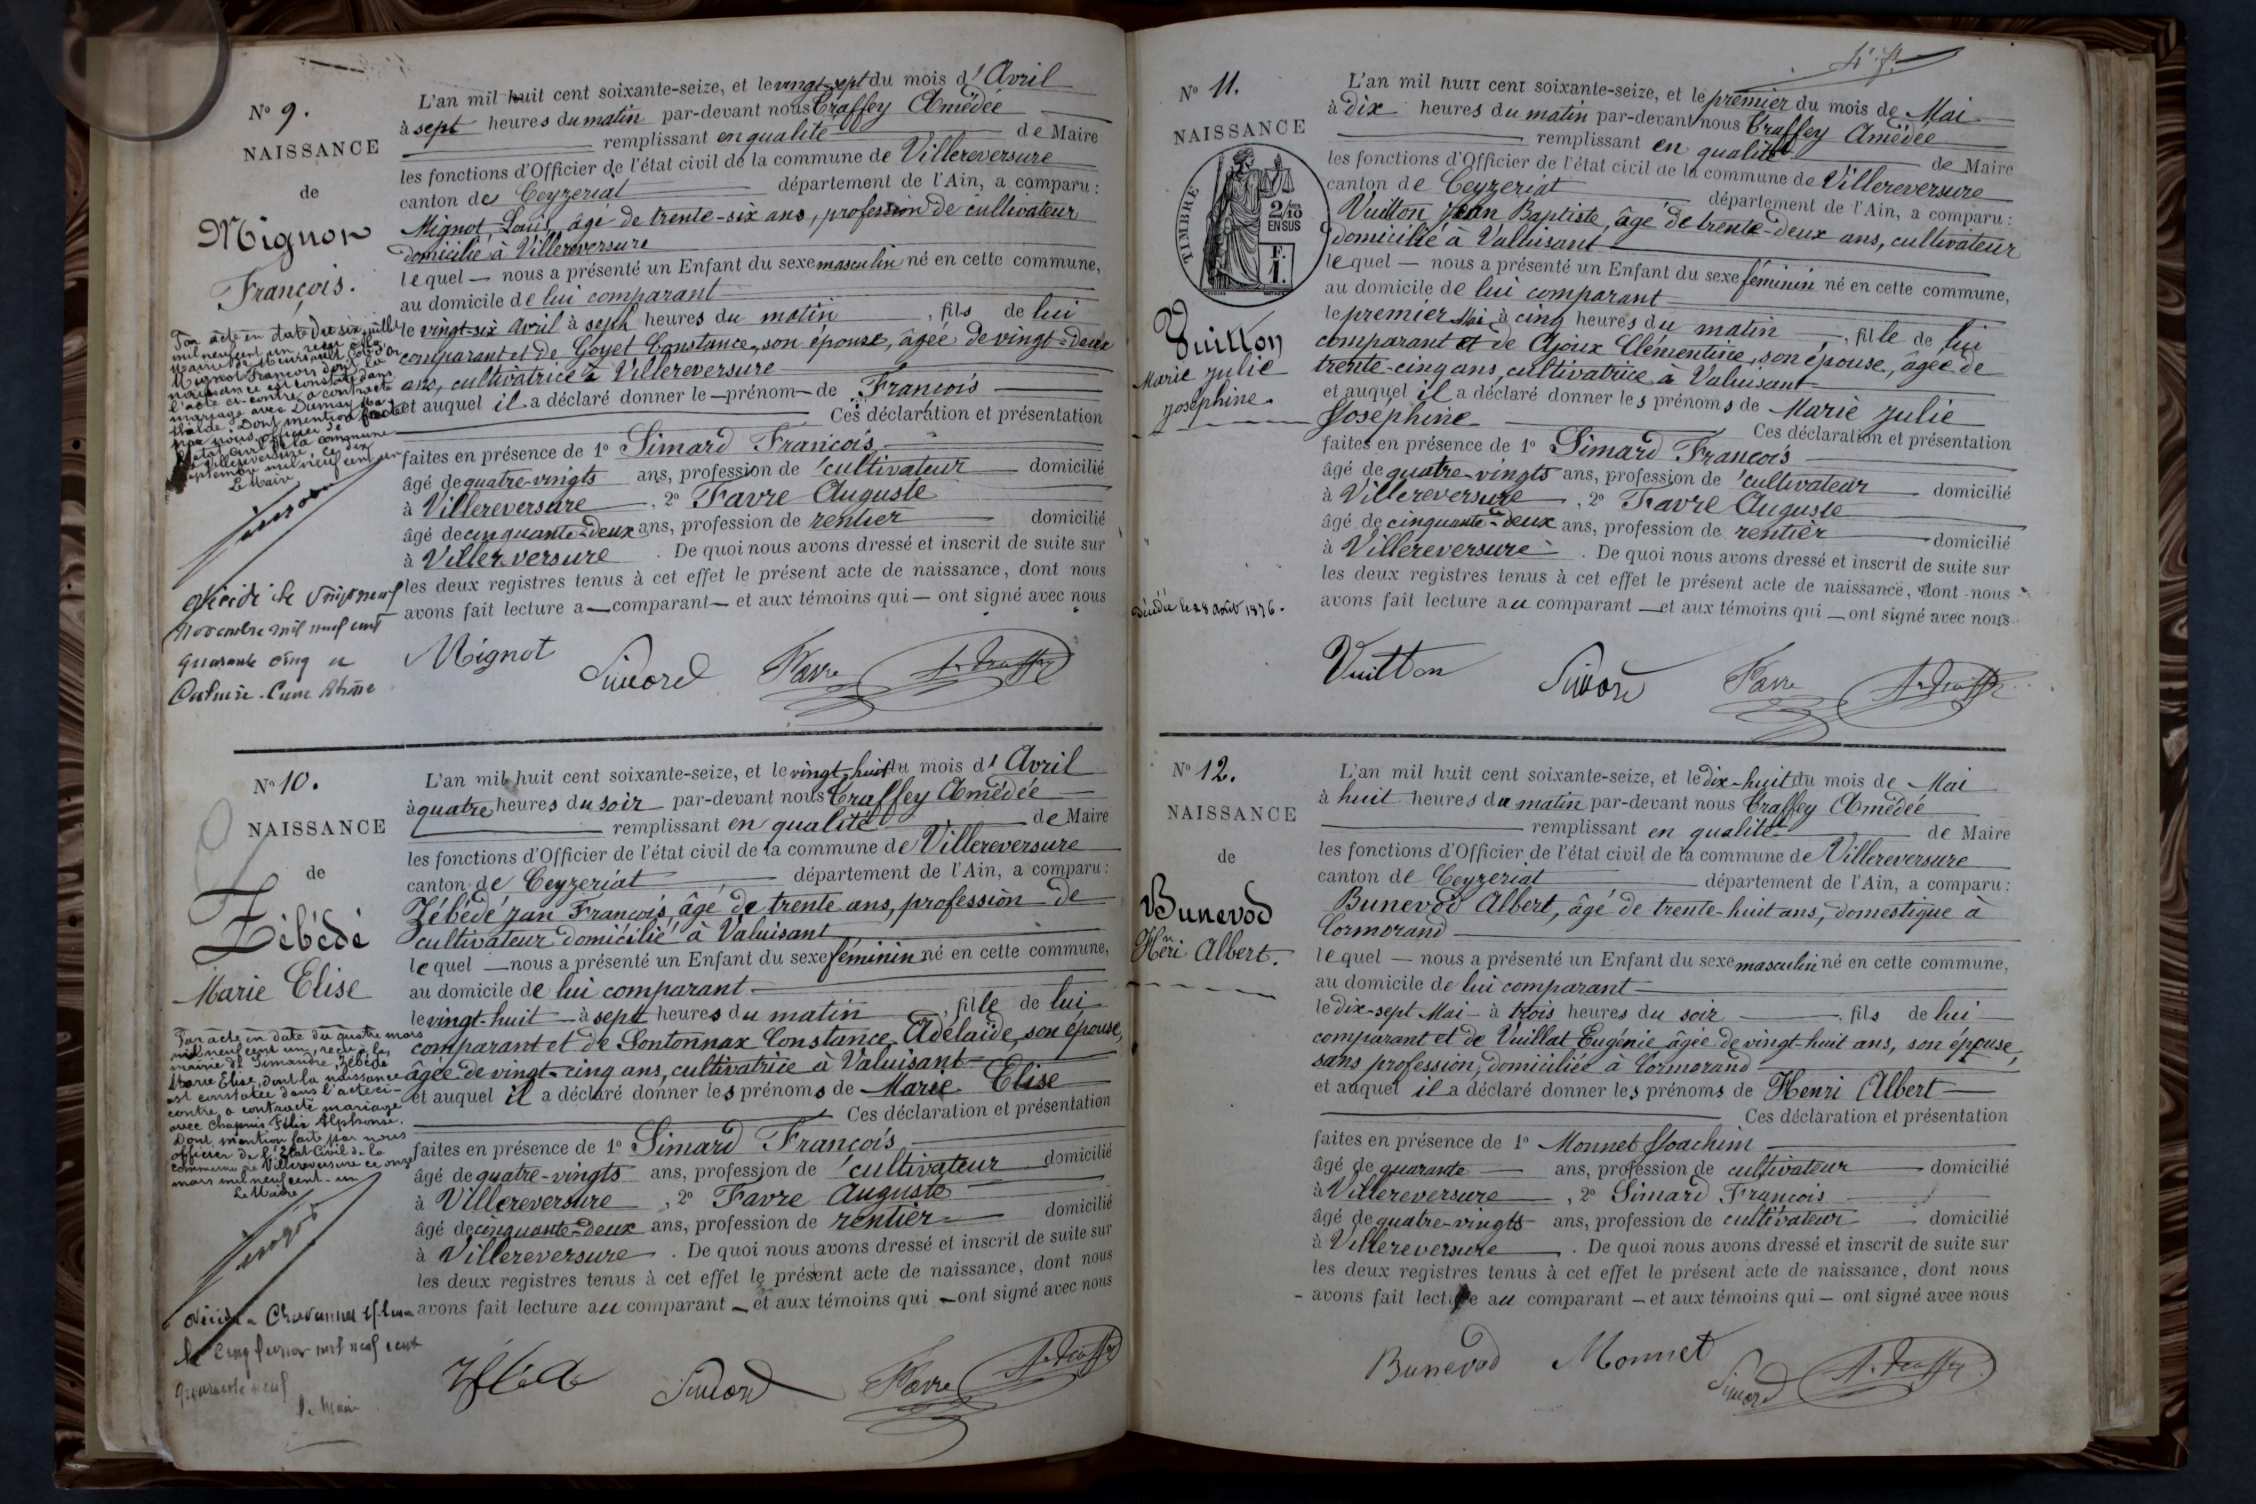 Nº 9.
NAISSANCE
de
Mignon
François.
Par acte en date du six juillet
mil neuf cent un, reçu à la
Mairie de Meursault Côte d'Or
Mignot François dont la
naissance est constatée dans
l'acte ci-contre a contracté
mariage avec Dumay Ma-
thilde. Dont mention faite
par nous officier de
l'état civil de la commune
de Villereversure ce dix
septembre mil neuf cent un
Le Maire
Décédé le vingt neuf
novembre mil neuf cent
quarante cinq a
Caluire-Cuire Rhône
L'an mil huit cent soixante-seize, et le vingt-sept du mois d'Avril
à sept heures du matin par-devant nous Traffey Amédée
remplissant en qualité de Maire
les fonctions d'Officier de l'état civil de la commune de Villereversure
canton de Ceyzeriat département de l'Ain, a comparu :
Mignot, Louis, âgé de trente-six ans, profession de cultivateur
domicilié à Villereversure
lequel — nous a présenté un Enfant du sexe masculin né en cette commune,
au domicile de lui comparant
le vingt-six avril à sept heures du matin , fils de lui
comparant et de Goyet Constance, son épouse, âgée de vingt-deux
ans, cultivatrice à Villereversure
et auquel il a déclaré donner le — prénom — de François
Ces déclaration et présentation
faites en présence de 1º Simard François
âgé de quatre-vingts ans, profession de cultivateur domicilié
à Villereversure , 2º Favre Auguste
âgé de cinquante-deux ans, profession de rentier domicilié
à Villereversure . De quoi nous avons dressé et inscrit de suite sur
les deux registres tenus à cet effet le présent acte de naissance, dont nous
avons fait lecture a — comparant — et aux témoins qui — ont signé avec nous
Mignot Simard Favre A. Traffey
Nº 10.
NAISSANCE
de
Zébédé
Marie Elise
Par acte en date du quatre mars
mil neuf cent un, reçu à la
mairie de Simandre, Zébédé
Marie Elise, dont la naissance
est constatée dans l'acte ci-
contre, a contracté mariage
avec Chapuis Félix Alphonse.
Dont mention faite par nous
officier de l'Etat Civil de la
commune de Villereversure ce onze
mars mil neuf cent un
Le Maire
Décédée a Chavannes s/Suran
le cinq février mil neuf cent
quarante neuf
Le Maire
L'an mil huit cent soixante-seize, et le vingt-huit du mois d'Avril
à quatre heures du soir par-devant nous Traffey Amédée
remplissant en qualité de Maire
les fonctions d'Officier de l'état civil de la commune de Villereversure
canton de Ceyzeriat département de l'Ain, a comparu :
Zébédé Jean François, âgé de trente ans, profession de
cultivateur domicilié à Valuisant
lequel — nous a présenté un Enfant du sexe féminin né en cette commune,
au domicile de lui comparant
le vingt-huit — à sept heures du matin , fille de lui
comparant et de Sontonnax Constance Adélaïde, son épouse,
âgée de vingt-cinq ans, cultivatrice à Valuisant
et auquel il a déclaré donner les prénoms de Marie Elise
Ces déclaration et présentation
faites en présence de 1º Simard François
âgé de quatre-vingts ans, profession de cultivateur domicilié
à Villereversure , 2º Favre Auguste
âgé de cinquante-deux ans, profession de rentier domicilié
à Villereversure . De quoi nous avons dressé et inscrit de suite sur
les deux registres tenus à cet effet le présent acte de naissance, dont nous
avons fait lecture au comparant — et aux témoins qui — ont signé avec nous
Simard Favre A. Traffey
Nº 11.
NAISSANCE
TIMBRE
2/10 EN SUS
F. 1.
Vuitton
Marie Julie
Joséphine.
Décédée le 28 août 1876.
L'an mil huit cent soixante-seize, et le premier du mois de Mai
à dix heures du matin par-devant nous Traffey Amédée
remplissant en qualité de Maire
les fonctions d'Officier de l'état civil de la commune de Villereversure
canton de Ceyzeriat département de l'Ain, a comparu :
Vuitton Jean Baptiste, âgé de trente-deux ans, cultivateur
domicilié à Valuisant
lequel — nous a présenté un Enfant du sexe féminin né en cette commune,
au domicile de lui comparant
le premier Mai à cinq heures du matin , fille de lui
comparant et de Ajoux Clémentine, son épouse, âgée de
trente-cinq ans, cultivatrice à Valuisant
et auquel il a déclaré donner les prénoms de Marie Julie
Joséphine Ces déclaration et présentation
faites en présence de 1º Simard François
âgé de quatre-vingts ans, profession de cultivateur domicilié
à Villereversure , 2º Favre Auguste
âgé de cinquante-deux ans, profession de rentier domicilié
à Villereversure . De quoi nous avons dressé et inscrit de suite sur
les deux registres tenus à cet effet le présent acte de naissance, dont nous
avons fait lecture au comparant — et aux témoins qui — ont signé avec nous
Vuitton Simard Favre A. Traffey
Nº 12.
NAISSANCE
de
Bunevod
Henri Albert.
L'an mil huit cent soixante-seize, et le dix-huit du mois de Mai
à huit heures du matin par-devant nous Traffey Amédée
remplissant en qualité de Maire
les fonctions d'Officier de l'état civil de la commune de Villereversure
canton de Ceyzeriat département de l'Ain, a comparu :
Bunevod Albert, âgé de trente-huit ans, domestique à
Cormorand
lequel — nous a présenté un Enfant du sexe masculin né en cette commune,
au domicile de lui comparant
le dix-sept Mai — à trois heures du soir , fils de lui
comparant et de Vuillat Eugénie âgée de vingt-huit ans, son épouse,
sans profession, domiciliée à Cormorand
et auquel il a déclaré donner les prénoms de Henri Albert
Ces déclaration et présentation
faites en présence de 1º Monnet Joachim
âgé de quarante ans, profession de cultivateur domicilié
à Villereversure , 2º Simard François
âgé de quatre-vingts ans, profession de cultivateur domicilié
à Villereversure . De quoi nous avons dressé et inscrit de suite sur
les deux registres tenus à cet effet le présent acte de naissance, dont nous
avons fait lecture au comparant — et aux témoins qui — ont signé avec nous
Bunevod Monnet Simard A. Traffey